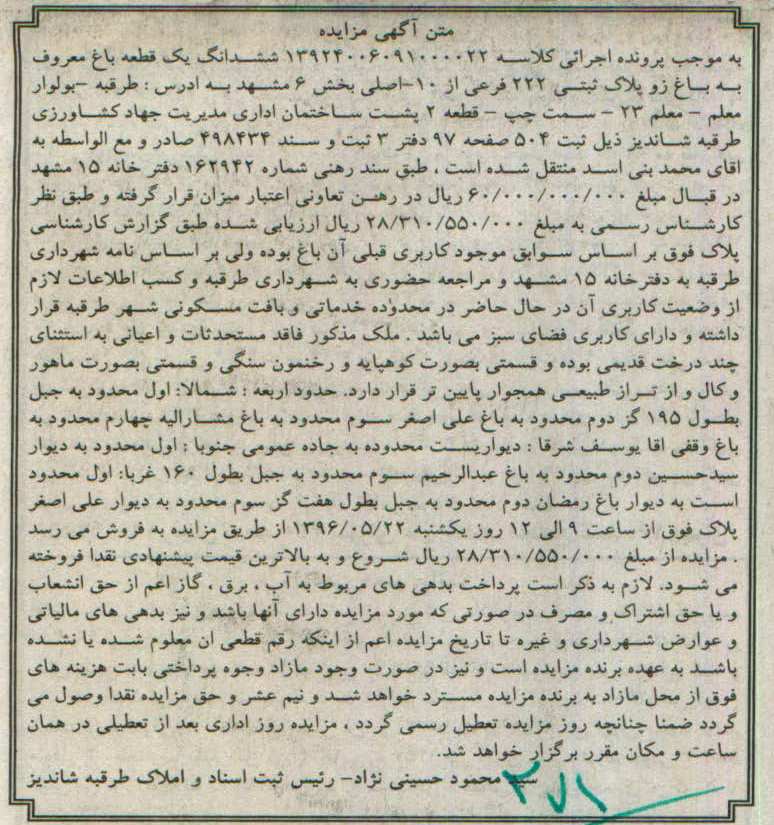 متن آگهی مزایده
به موجب پرونده اجرائی کلاسه ۱۳۹۲۴۰۰۶۰۹۱۰۰۰۰۲۲ ششدانگ یک قطعه باغ معروف
به باغ زو پلاک ثبتی ۲۲۲ فرعی از ۱۰-اصلی بخش ۶ مشهد به ادرس : طرقبه -بولوار
معلم - معلم ۲۳ - سمت چپ - قطعه ۲ پشت ساختمان اداری مدیریت جهاد کشاورزی
طرقبه شاندیز ذیل ثبت ۵۰۴ صفحه ۹۷ دفتر ۳ ثبت و سند ۴۹۸۴۳۴ صادر و مع الواسطه به
اقای محمد بنی اسد منتقل شده است ، طبق سند رهنی شماره ۱۶۲۹۴۲ دفتر خانه ۱۵ مشهد
در قبال مبلغ ۶۰/۰۰۰/۰۰۰/۰۰۰ ریال در رهن تعاونی اعتبار میزان قرار گرفته و طبق نظر
کارشناس رسمی به مبلغ ۲۸/۳۱۰/۵۵۰/۰۰۰ ریال ارزیابی شده طبق گزارش کارشناسی
پلاک فوق بر اساس سوابق موجود کاربری قبلی آن باغ بوده ولی بر اساس نامه شهرداری
طرقبه به دفترخانه ۱۵ مشهد و مراجعه حضوری به شهرداری طرقبه و کسب اطلاعات لازم
از وضعیت کاربری آن در حال حاضر در محدوده خدماتی و بافت مسکونی شهر طرقبه قرار
داشته و دارای کاربری فضای سبز می باشد . ملک مذکور فاقد مستحدثات و اعیانی به استثنای
چند درخت قدیمی بوده و قسمتی بصورت کوهپایه و رخنمون سنگی و قسمتی بصورت ماهور
و کال و از تراز طبیعی همجوار پایین تر قرار دارد. حدود اربعه : شمالا: اول محدود به جبل
بطول ۱۹۵ گز دوم محدود به باغ علی اصغر سوم محدود به باغ مشارالیه چهارم محدود به
باغ وقفی اقا یوسف شرقا : دیواریست محدوده به جاده عمومی جنوبا : اول محدود به دیوار
سیدحسین دوم محدود به باغ عبدالرحیم سوم محدود به جبل بطول ۱۶۰ غربا: اول محدود
است به دیوار باغ رمضان دوم محدود به جبل بطول هفت گز سوم محدود به دیوار علی اصغر
پلاک فوق از ساعت ۹ الی ۱۲ روز یکشنبه ۱۳۹۶/۰۵/۲۲ از طریق مزایده به فروش می رسد
. مزایده از مبلغ ۲۸/۳۱۰/۵۵۰/۰۰۰ ریال شروع و به بالاترین قیمت پیشنهادی نقدا فروخته
می شود. لازم به ذکر است پرداخت بدهی های مربوط به آب ، برق ، گاز اعم از حق انشعاب
و یا حق اشتراک و مصرف در صورتی که مورد مزایده دارای آنها باشد و نیز بدهی های مالیاتی
و عوارض شهرداری و غیره تا تاریخ مزایده اعم از اینکه رقم قطعی ان معلوم شده یا نشده
باشد به عهده برنده مزایده است و نیز در صورت وجود مازاد وجوه پرداختی بابت هزینه های
فوق از محل مازاد به برنده مزایده مسترد خواهد شد و نیم عشر و حق مزایده نقدا وصول می
گردد ضمنا چنانچه روز مزایده تعطیل رسمی گردد ، مزایده روز اداری بعد از تعطیلی در همان
ساعت و مکان مقرر برگزار خواهد شد.
سید محمود حسینی نژاد- رئیس ثبت اسناد و املاک طرقبه شاندیز
۳۷۱